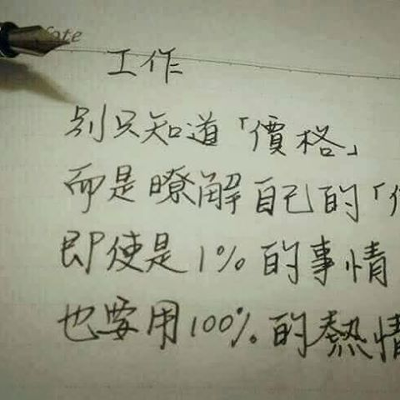 工作
別只知道「價格」
而是瞭解自己的「
即使是1%的事情
也要用100%的熱情